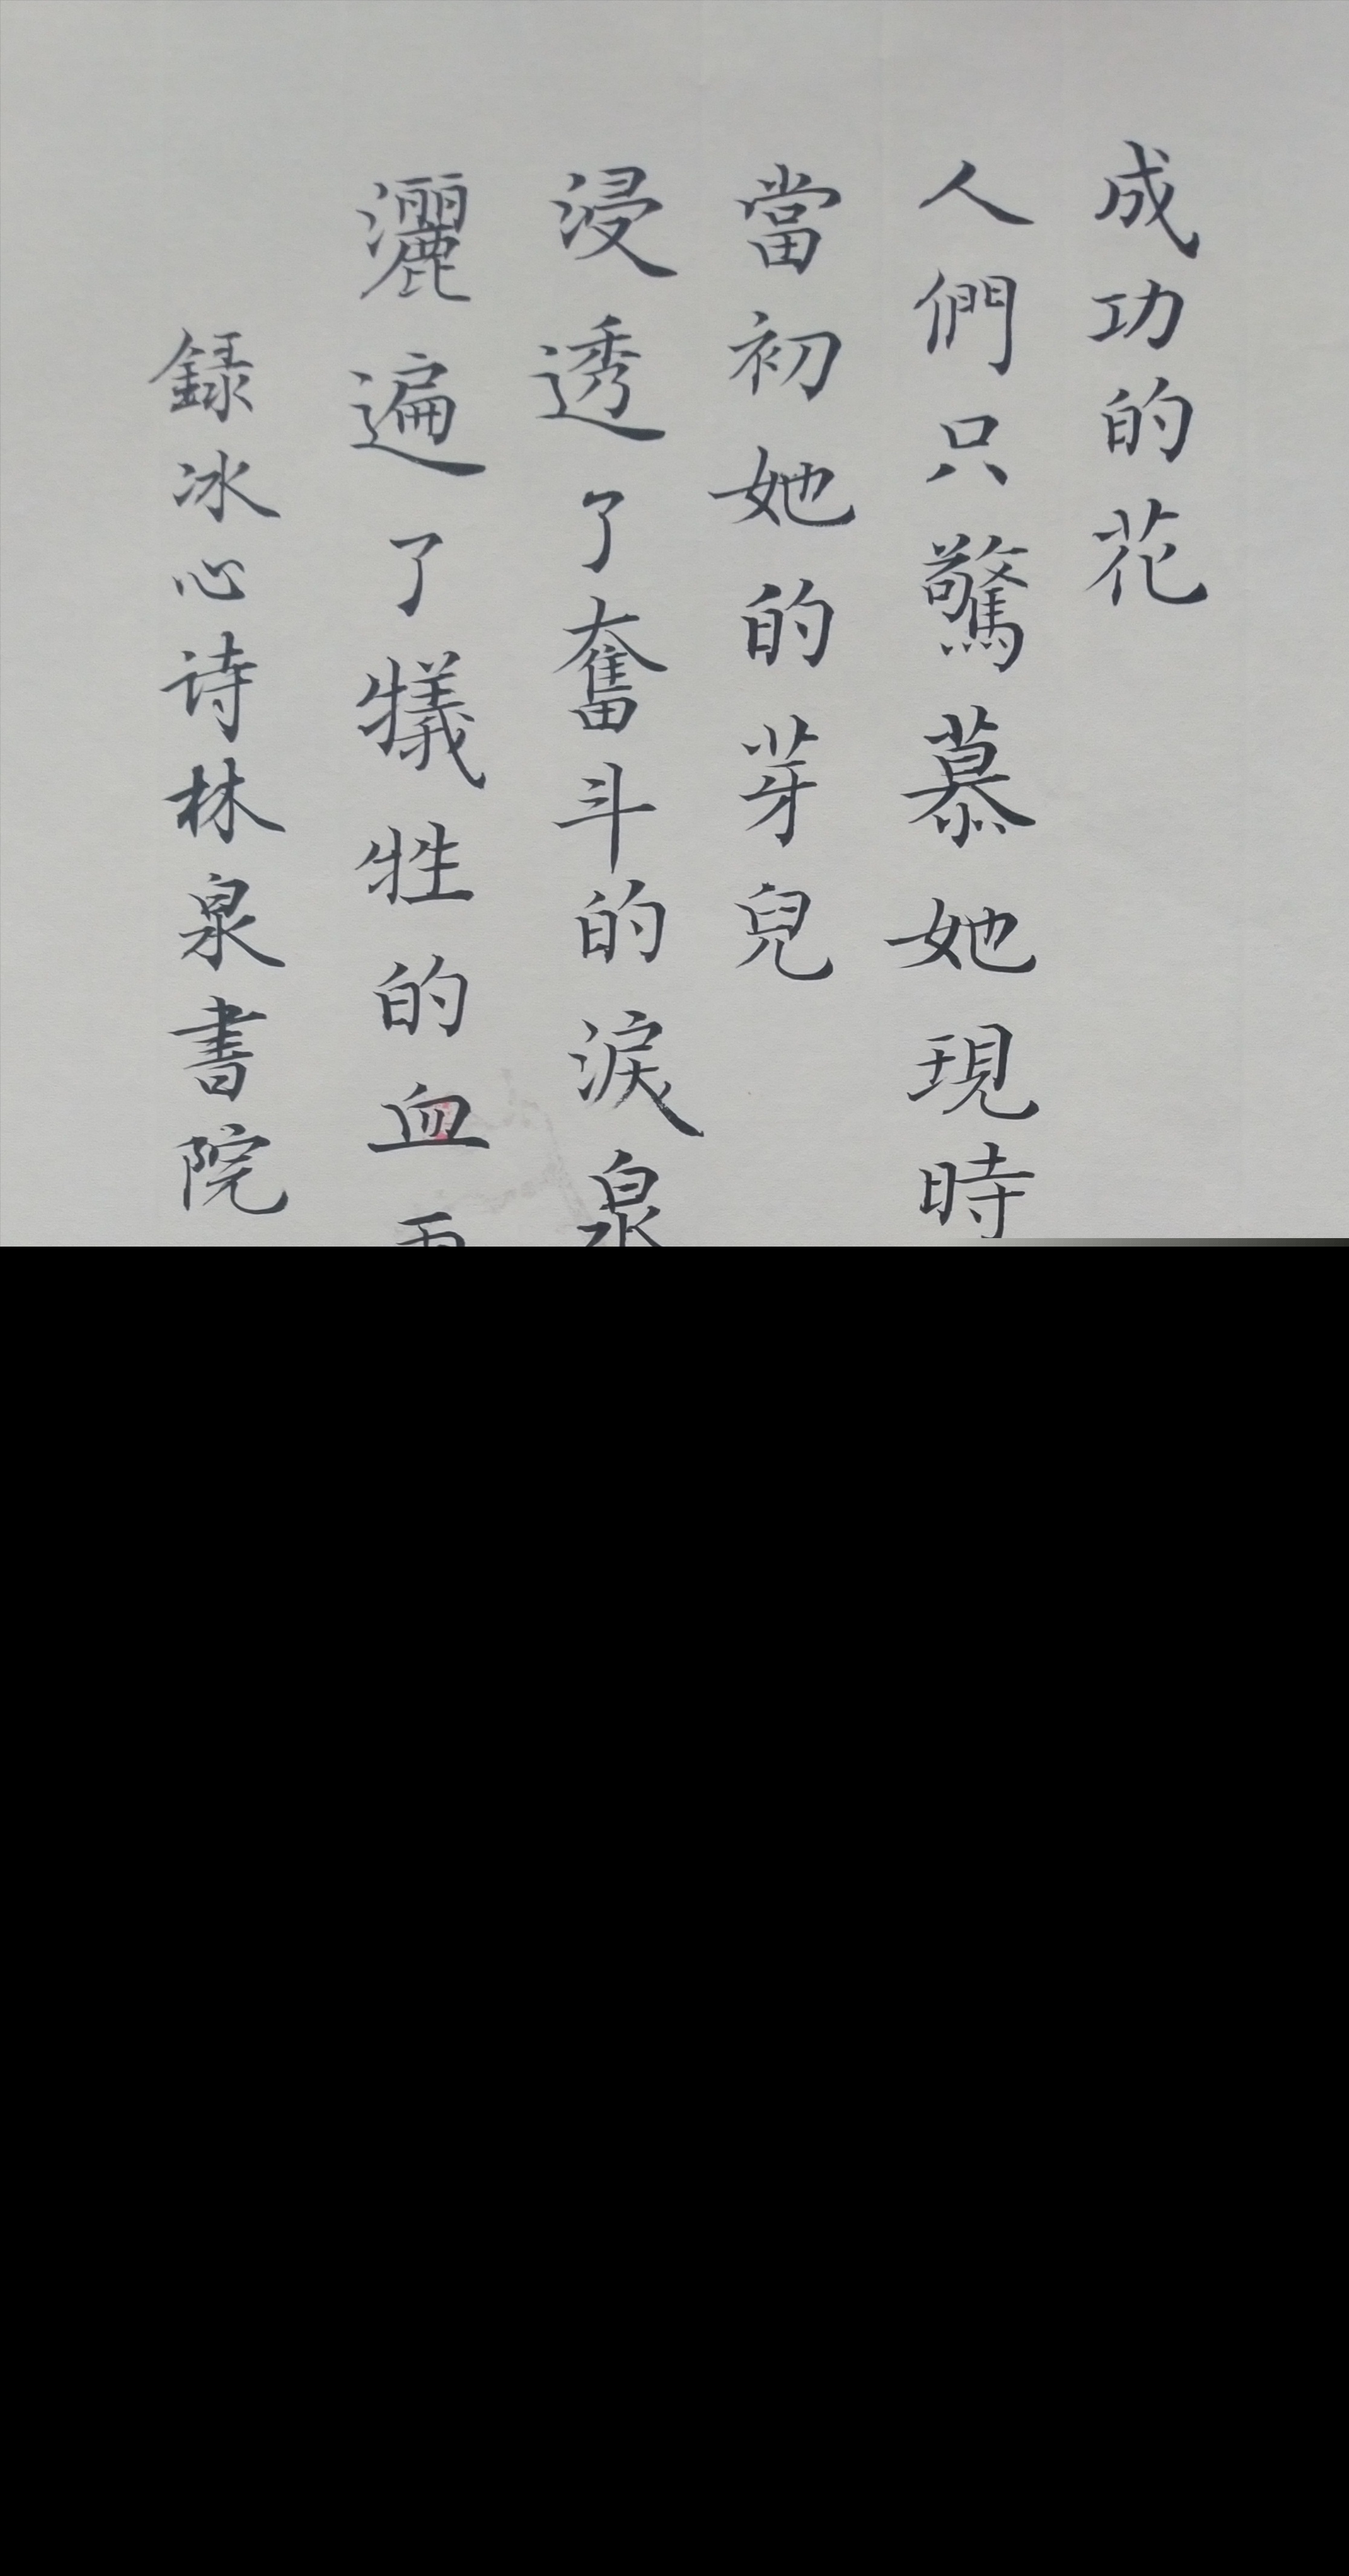 成功的花
人們只驚慕她現時
當初她的芽兒
浸透了奮斗的淚泉
灑遍了犠牲的血
録冰心诗林泉書院